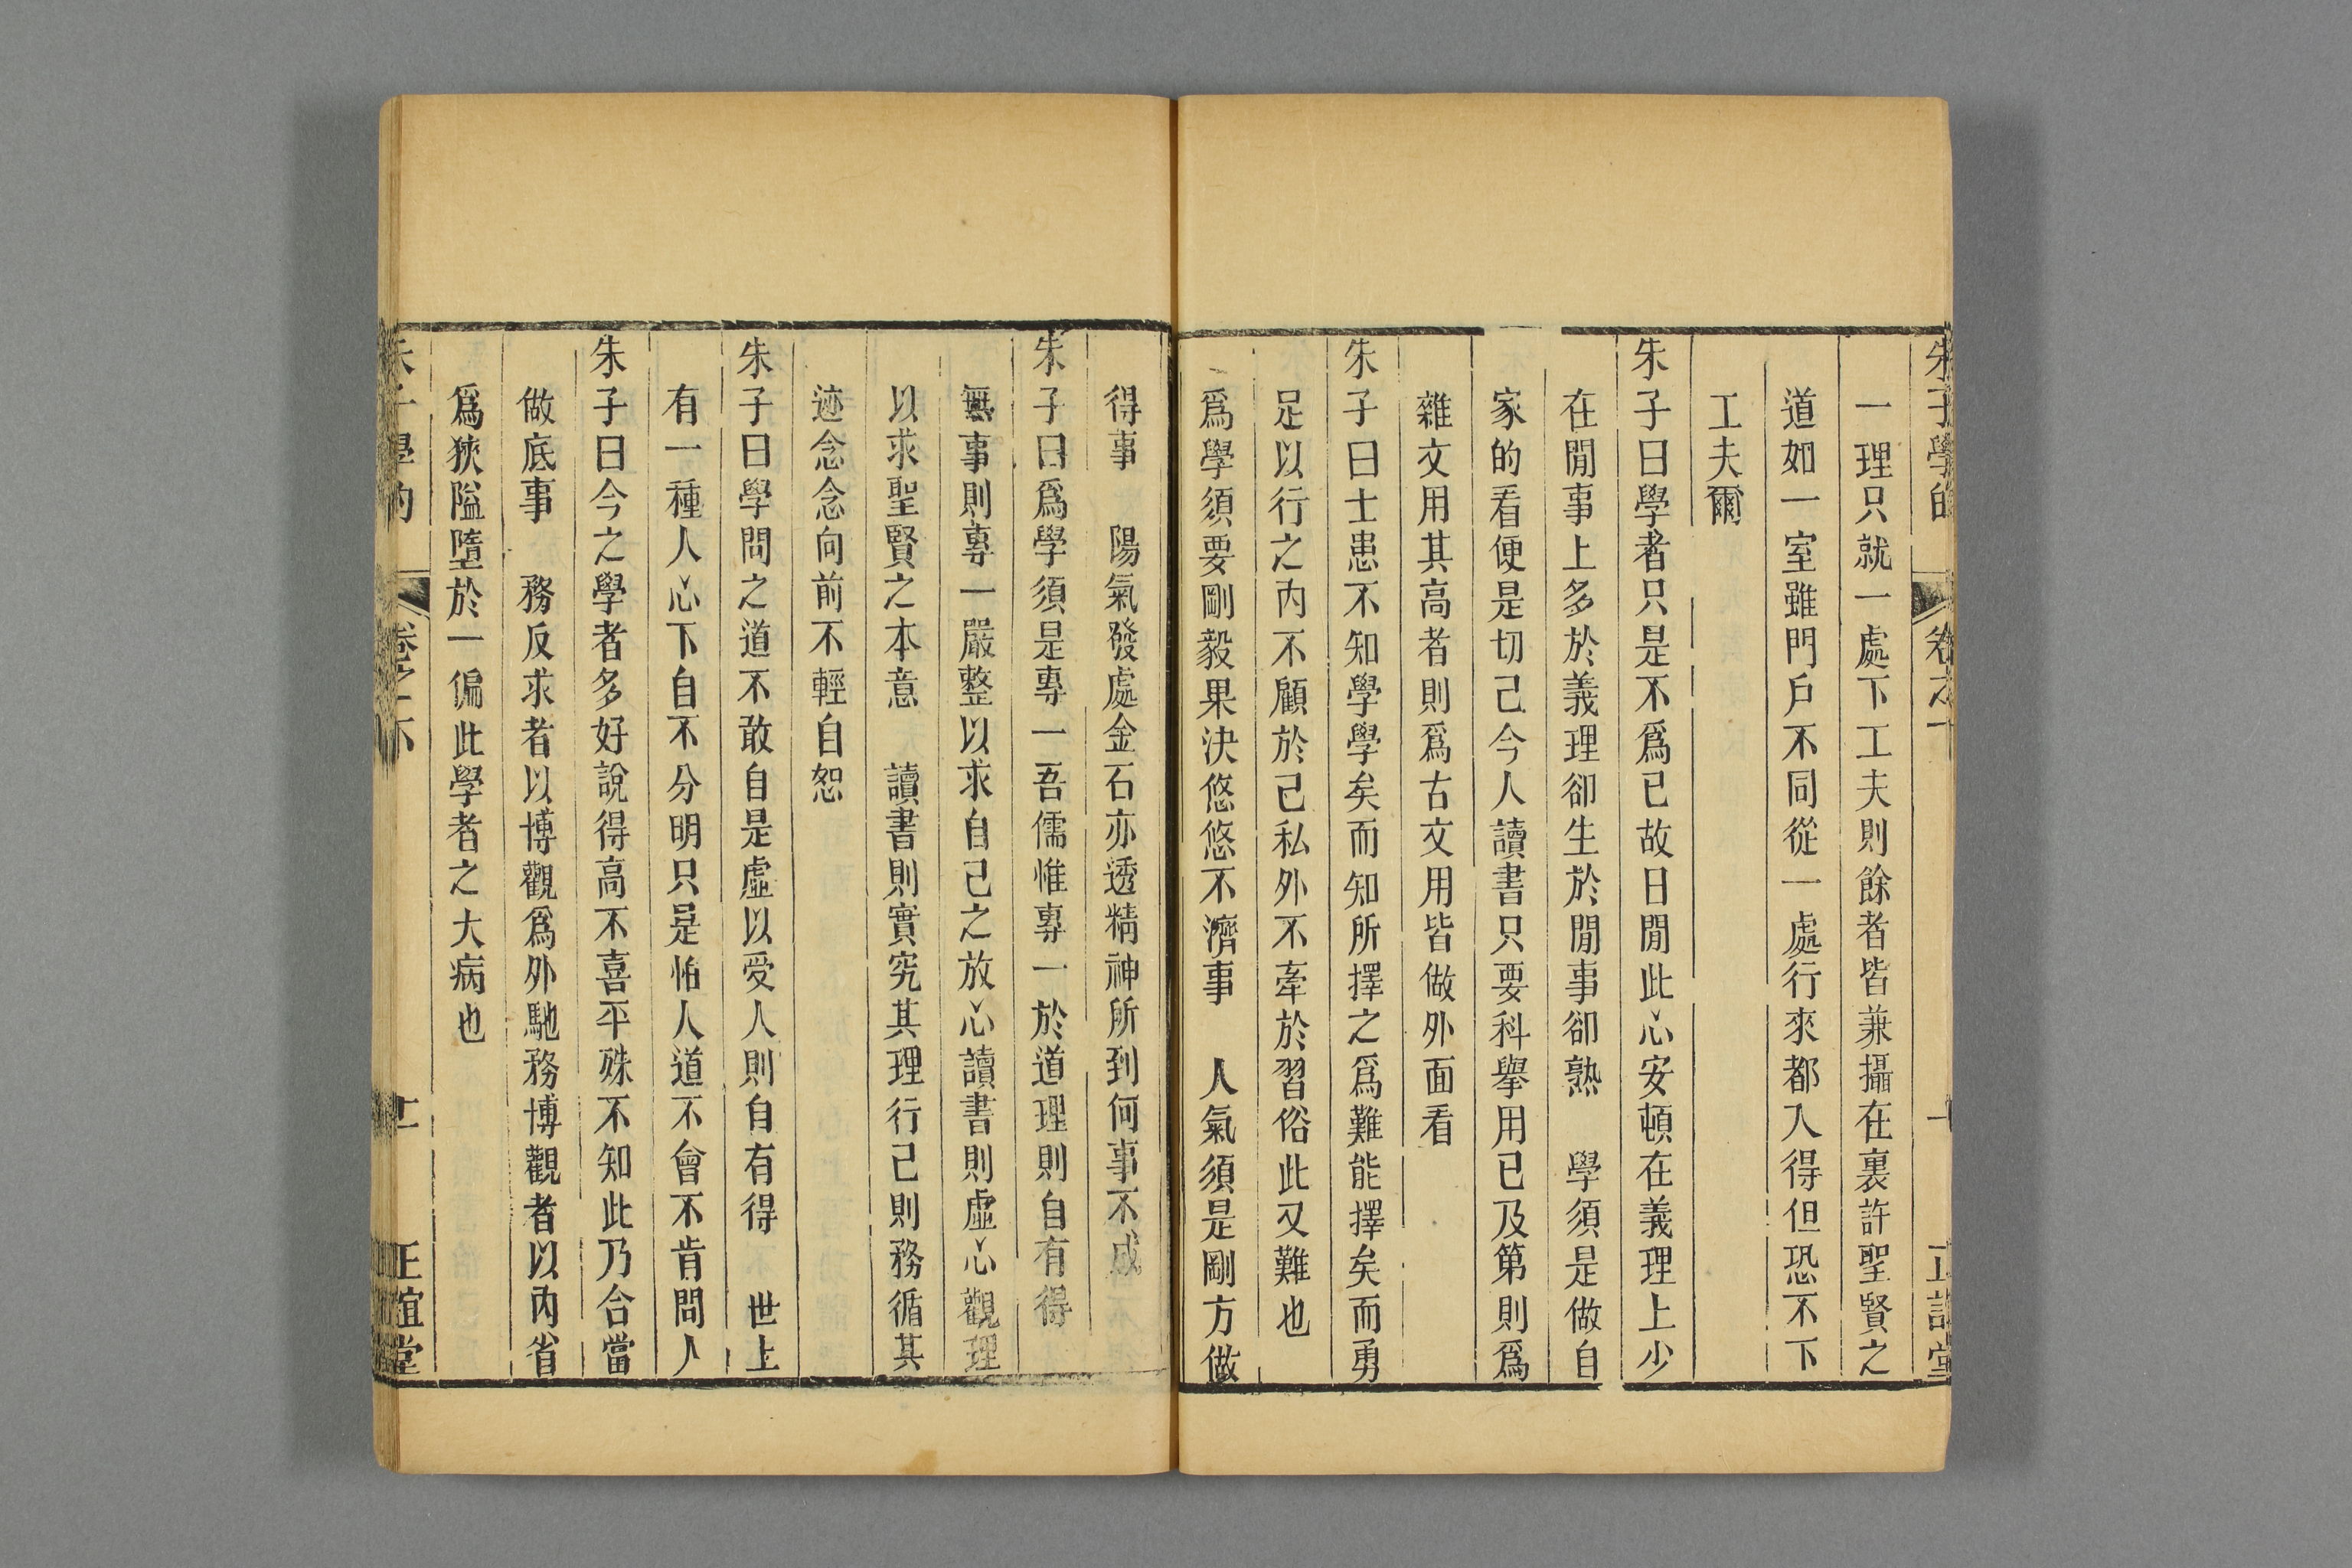 朱子學的 卷之下 十 正誼堂
一理只就一處下工夫則餘者皆兼攝在裏許聖賢之
道如一室雖門戶不同從一處行來都入得但恐不下
工夫爾
朱子曰學者只是不爲已故日閒此心安頓在義理上少
在閒事上多於義理卻生於閒事卻熟 學須是做自
家的看便是切己今人讀書只要科擧用已及第則爲
雜文用其高者則爲古文用皆做外面看
朱子曰士患不知學學矣而知所擇之爲難能擇矣而勇
足以行之內不顧於己私外不牽於習俗此又難也
爲學須要剛毅果決悠悠不濟事 人氣須是剛方做
得事 陽氣發處金石亦透精神所到何事不成
朱子曰爲學須是專一吾儒惟專一於道理則自有得
無事則專一嚴整以求自己之放心讀書則虛心觀理
以求聖賢之本意 讀書則實究其理行己則務循其
迹念念向前不輕自恕
朱子曰學問之道不敢自是虛以受人則自有得 世上
有一種人心下自不分明只是怕人道不會不肯問人
朱子曰今之學者多好說得高不喜平殊不知此乃合當
做底事 務反求者以博觀爲外馳務博觀者以內省
爲狹隘墮於一偏此學者之大病也
朱子學的 卷之下 十一 正誼堂